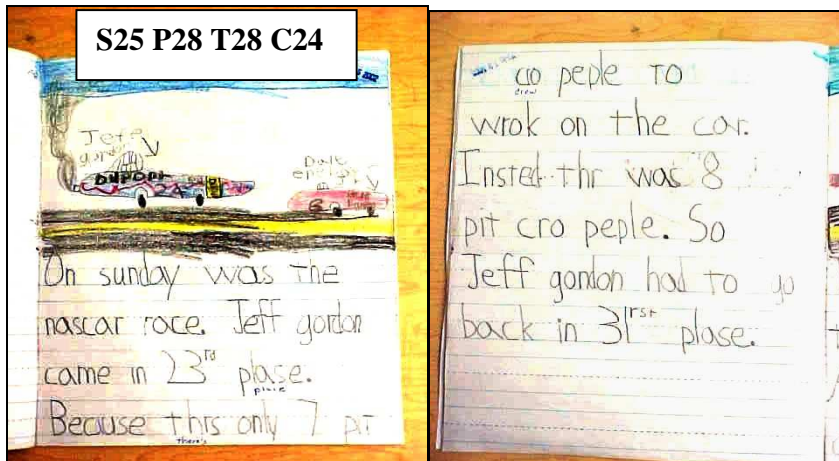 S25 P28 T28 C24
Jeff
gordon
DUPONT
24
Dale
8
On sunday was the
nascar race. Jeff gordon
came in 23rd plase.
place
Because thrs only 7 pit
there's
cro peple To
crew
wrok on the car.
Insted thr was 8
pit cro peple. So
Jeff gordon had to go
back in 31rst plase.